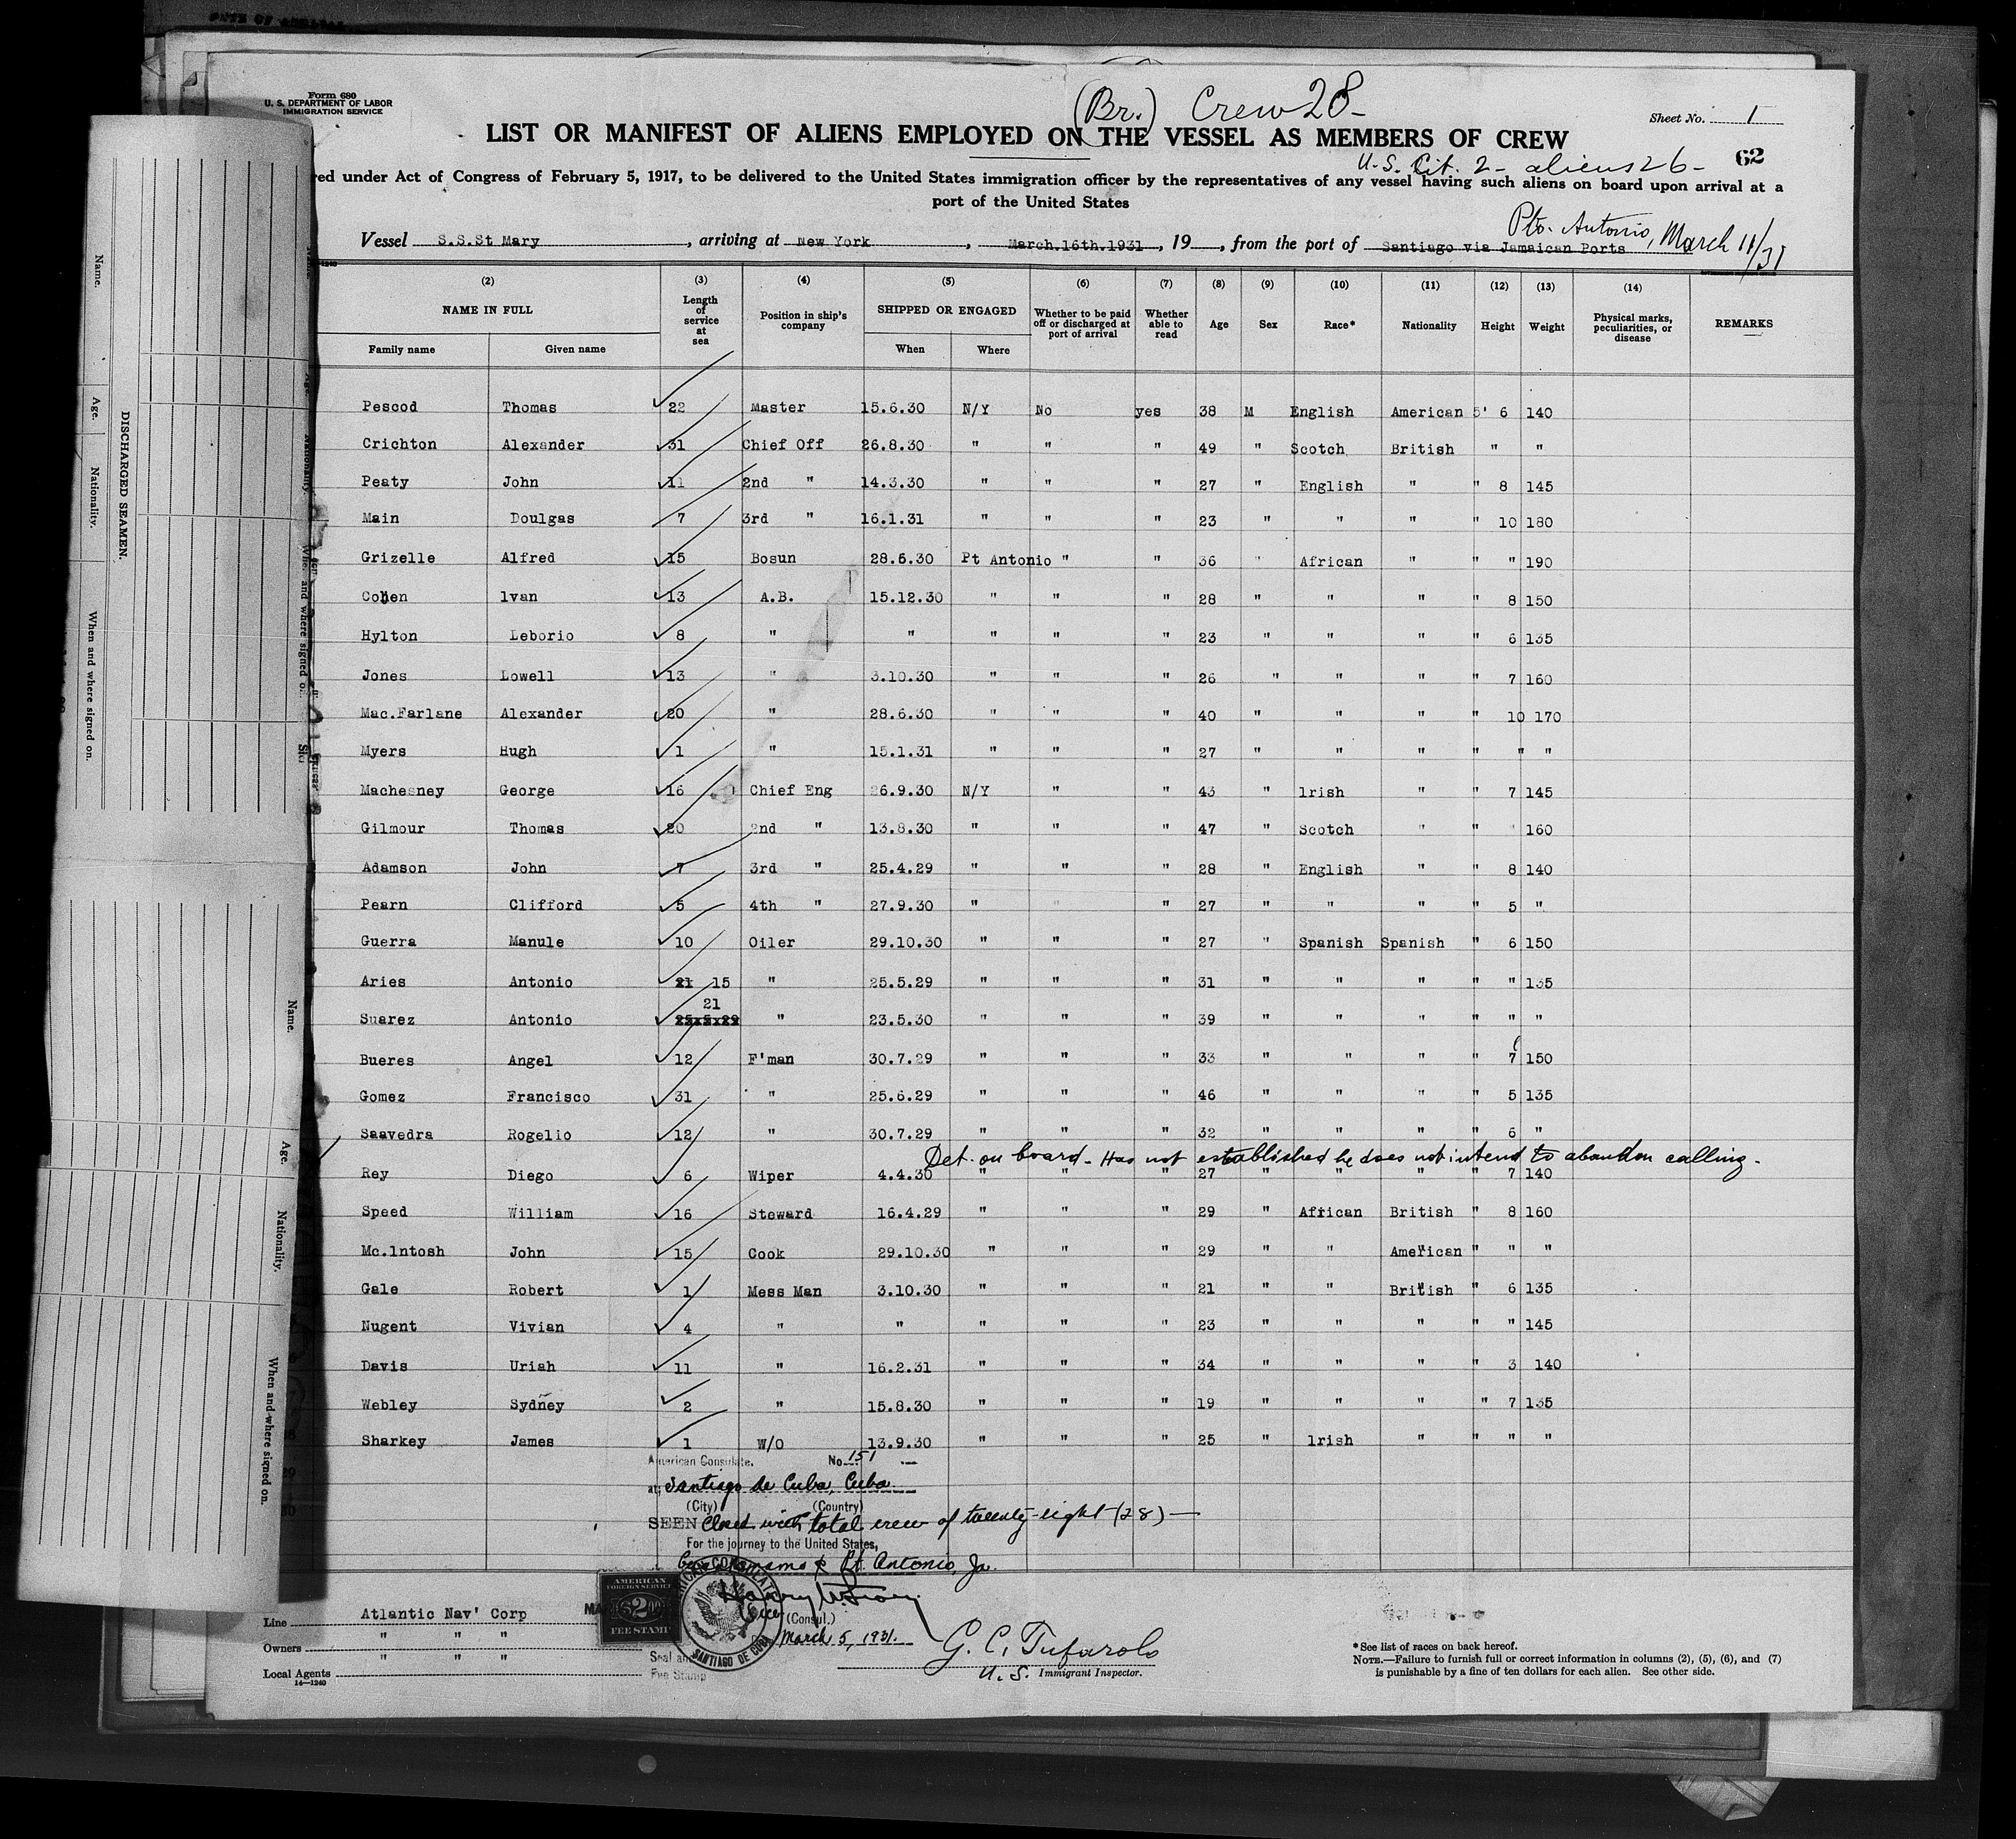 Form 680
U. S. DEPARTMENT OF LABOR
IMMIGRATION SERVICE
(Br.) Crew 28-
Sheet No. 1
LIST OR MANIFEST OF ALIENS EMPLOYED ON THE VESSEL AS MEMBERS OF CREW
U.S. Cit. 2 - aliens 26 -
62
red under Act of Congress of February 5, 1917, to be delivered to the United States immigration officer by the representatives of any vessel having such aliens on board upon arrival at a
port of the United States
Pto. Antonio, March 11/31
Vessel S.S.St Mary, arriving at New York, March.16th.1931, 19 , from the port of Santiago via Jamaican Ports
(2) (3) (4) (5) (6) (7) (8) (9) (10) (11) (12) (13) (14)
NAME IN FULL Length of service at sea Position in ship's company SHIPPED OR ENGAGED Whether to be paid off or discharged at port of arrival Whether able to read Age Sex Race* Nationality Height Weight Physical marks, peculiarities, or disease REMARKS
Family name Given name When Where
Pescod Thomas 22 Master 15.6.30 N/Y No yes 38 M English American 5' 6 140
Crichton Alexander 31 Chief Off 26.8.30 " " " 49 " Scotch British " "
Peaty John 11 2nd " 14.3.30 " " " 27 " English " " 8 145
Main Doulgas 7 3rd " 16.1.31 " " " 23 " " " " 10 180
Grizelle Alfred 15 Bosun 28.6.30 Pt Antonio " " 36 " African " " " 190
Cohen Ivan 13 A.B. 15.12.30 " " " 28 " " " " 8 150
Hylton Leborio 8 " " " " " 23 " " " " 6 135
Jones Lowell 13 " 3.10.30 " " " 26 " " " " 7 160
Mac.Farlane Alexander 20 " 28.6.30 " " " 40 " " " " 10 170
Myers Hugh 1 " 15.1.31 " " " 27 " " " " "
Machesney George 16 Chief Eng 26.9.30 N/Y " " 43 " lrish " " 7 145
Gilmour Thomas 20 2nd " 13.8.30 " " " 47 " Scotch " " " 160
Adamson John 7 3rd " 25.4.29 " " " 28 " English " " 8 140
Pearn Clifford 5 4th " 27.9.30 " " " 27 " " " " 5 "
Guerra Manule 10 Oiler 29.10.30 " " " 27 " Spanish Spanish " 6 150
Aries Antonio 21 15 " 25.5.29 " " " 31 " " " " " 135
21
Suarez Antonio 25.5.29 " 23.5.30 " " " 39 " " " " " "
Bueres Angel 12 F'man 30.7.29 " " " 33 " " " " 7 150
Gomez Francisco 31 " 25.6.29 " " " 46 " " " " 5 135
Saavedra Rogelio 12 " 30.7.29 " " " 32 " " " " 6 "
Det. on board - Has not established he does not intend to abandon calling.
Rey Diego 6 Wiper 4.4.30 " " " 27 " " " " 7 140
Speed William 16 Steward 16.4.29 " " " 29 " African British " 8 160
Mc.lntosh John 15 Cook 29.10.30 " " " 29 " " American " " "
Gale Robert 1 Mess Man 3.10.30 " " " 21 " " British " 6 135
Nugent Vivian 4 " " " " " 23 " " " " " 145
Davis Uriah 11 " 16.2.31 " " " 34 " " " " 3 140
Webley Sydney 2 " 15.8.30 " " " 19 " " " " 7 135
Sharkey James 1 W/O 13.9.30 " " " 25 " lrish " " " "
American Consulate. No. 151
at Santiago de Cuba, Cuba
(City) (Country)
SEEN Closed with total crew of twenty-eight (28) —
For the journey to the United States,
& Pt. Antonio, Ja.
AMERICAN FOREIGN SERVICE
$2.00
FEE STAMP
AMERICAN CONSULATE
SANTIAGO DE CUBA
Vice (Consul.)
March 5, 1931.
Seal and
Fee Stamp
Line Atlantic Nav' Corp
Owners " " "
Local Agents " " "
14—1240
G. C. Tufarolo
U.S. Immigrant Inspector.
*See list of races on back hereof.
NOTE.—Failure to furnish full or correct information in columns (2), (5), (6), and (7)
is punishable by a fine of ten dollars for each alien. See other side.
DISCHARGED SEAMEN.
Name.
Age.
Nationality.
When and where signed on.
Name.
Age.
Nationality.
When and where signed on.